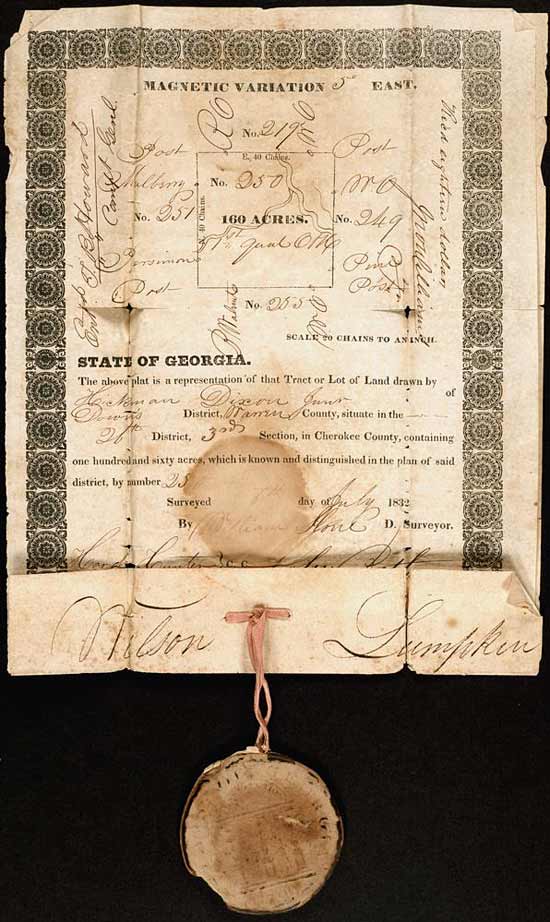 MAGNETIC VARIATION 5° EAST.
No. 219
Post
Post
E. 40 Chains.
Mulbery
No. 250
W O
No. 251
40 Chains.
160 ACRES.
No. 249
1st qual Oak
Persimon
Pine
Post
Post
No. 255
SCALE 20 CHAINS TO AN INCH.
STATE OF GEORGIA.
The above plat is a representation of that Tract or Lot of Land drawn by
Hickman Dixon Junr of
Downs District, Warren County, situate in the
26th District, 3rd Section, in Cherokee County, containing
one hundred and sixty acres, which is known and distinguished in the plan of said
district, by number 25
Surveyed day of July 1832
By William Stone D. Surveyor.
Wilson Lumpkin